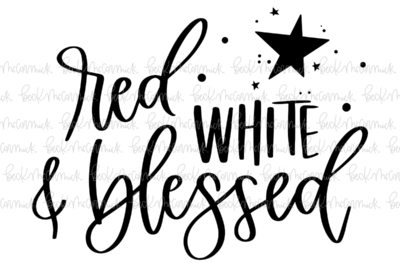 red
WHITE
& blessed